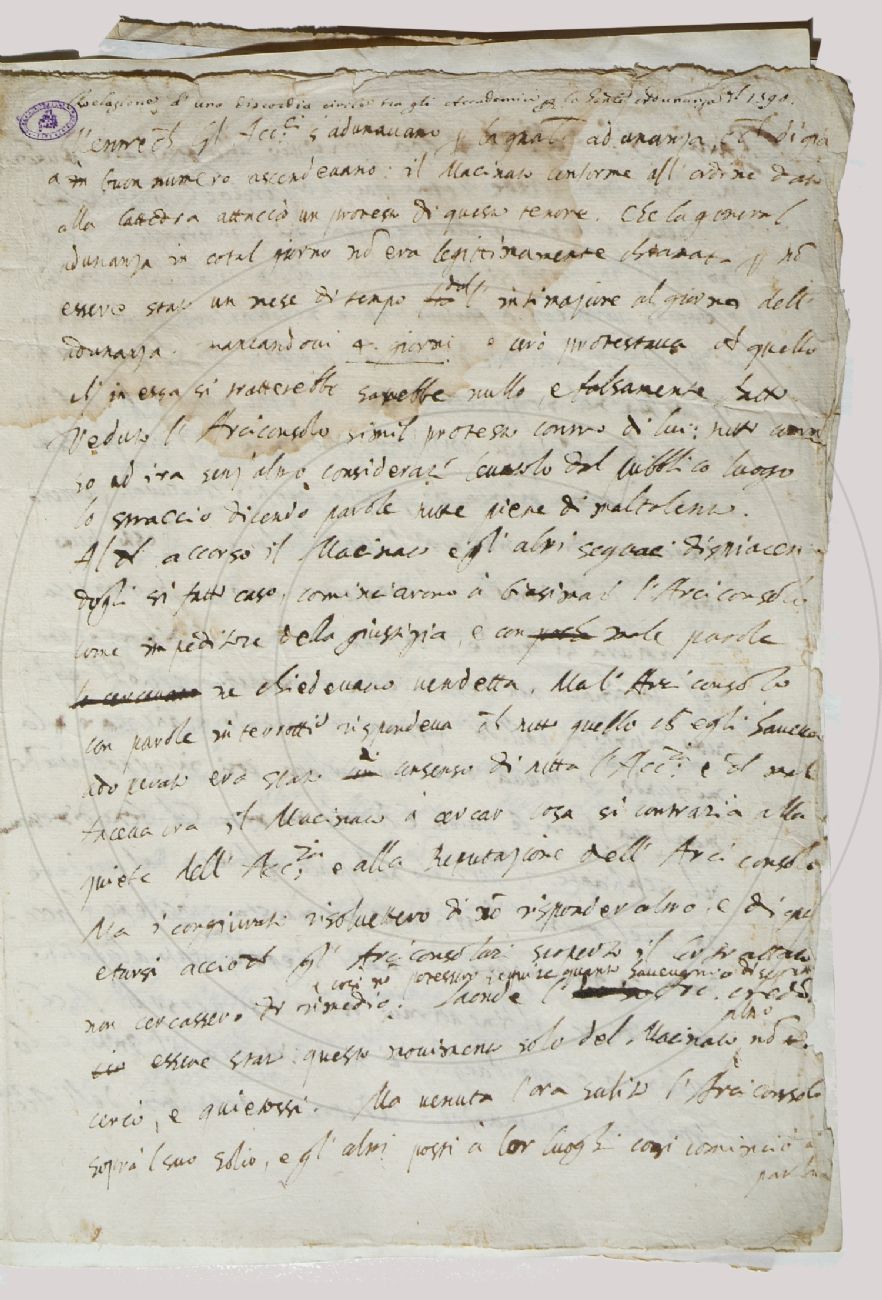 Relazione d'una discordia circa tra gli Accademici la adunanza del 1590.
Mentre ch gl' Acc.ci s'adunavano p la gnale adunanza, e ch di già
a in buon numero ascendevano: il Macinato conforme all'ordine dato
alla cattedra attaccò un protesto di questo tenore. Che la general
adunanza in cotal giorno nō era legittimamente chiamata p nō
essere stato un mese di tempo dal l'intimazione al giorno dell'
adunanza. mancandovi 4. giorni e ciò protestava ch quello
ch' in essa si tratterebbe sarebbe nullo, e falsamente fatto
Veduto l'Arciconsolo simil protesto contro di lui: tutto
so ad ira senz'altro del pubblico luogo
lo stracciò dicendo parole tutte piene di maltalento.
Al ch accorso il Macinato e gl'altri seguaci dispiacen
dogli sì fatto caso, cominciarono à biasimar l'Arciconsolo
come impeditore della giustizia, e con male parole
lo cercavano ne chiedevano vendetta. Ma l'Arciconsolo
con parole interrotte rispondeva ch tutto quello ch egli haveva
adoperato era stato consenso di tutta l'Acc.ia e ch mal
faceva ora il Macinato à cercar cosa sì contraria alla
quiete dell'Acc.ia e alla Reputazione dell'Arciconsolo
Ma i congiurati risolvettero di nō risponder altro, e di qui
etarsi acciò ch gl'Arciconsolari scoperto il lor trattato
e così nō potessero seguire quanto havevano disegn
non cercassero di rimedio. Laonde l' Arc. credō
altro
essere stato questo movimento solo del Macinato nō
cercò, e quietossi. Ma venuta l'ora salito l'Arciconsolo
sopra 'l suo solio, e gl'altri posti à lor luoghi così cominciò à
parlare